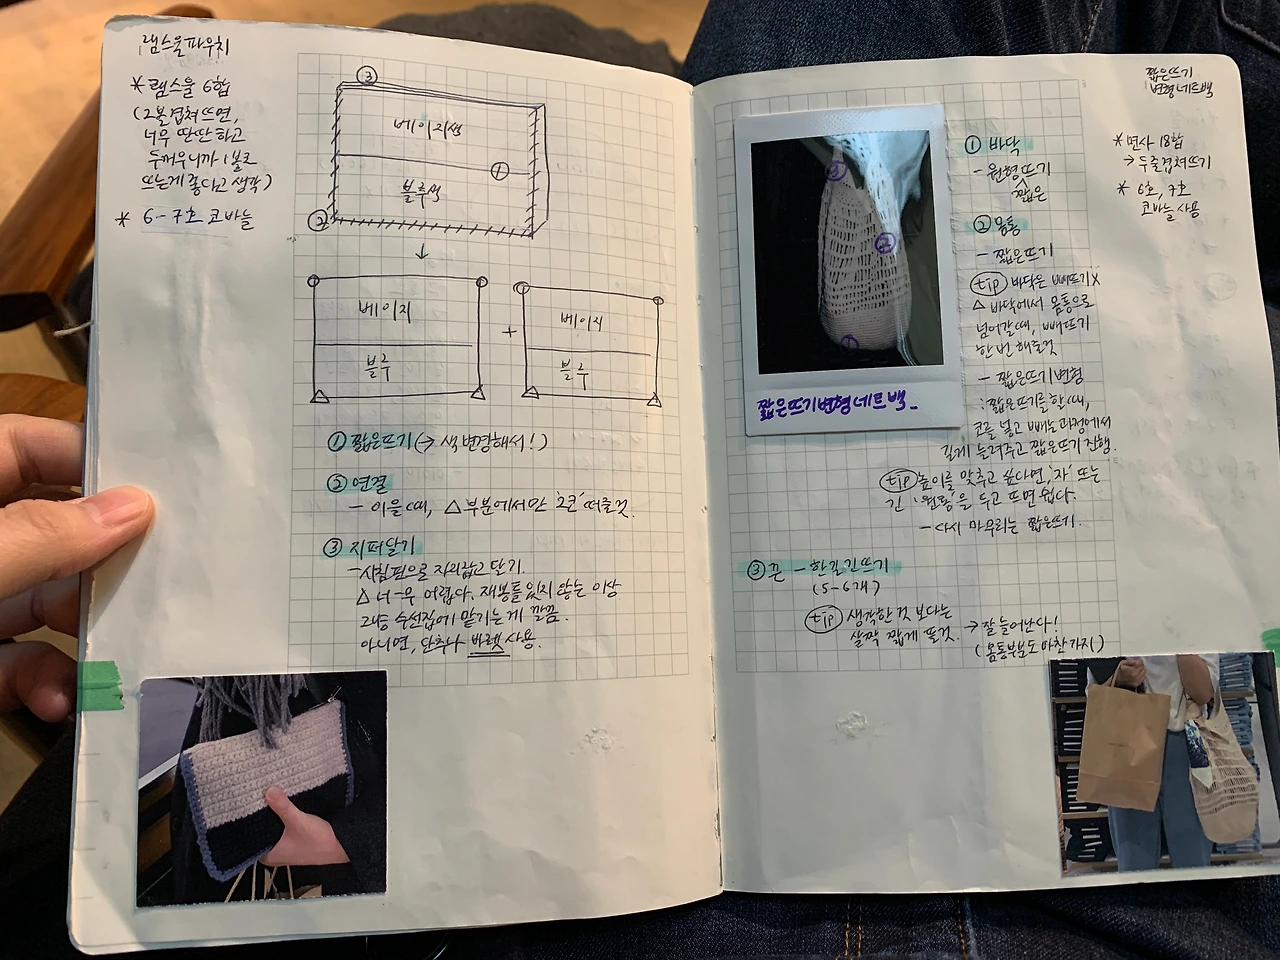 램스울파우치
* 램스울 6합
(2볼 겹쳐 뜨면,
너무 딴딴하고
두꺼우니까 1볼로
뜨는게 좋다고 생각)
* 6-7호 코바늘
③
베이지색
①
블루색
②
↓
베이지
블루
+
베이지
블루
① 짧은뜨기 (→ 색 변경해서!)
② 연결
- 이을 때, △ 부분에서만 '2코' 떠줄것.
③ 지퍼달기
- 시침핀으로 자리잡고 달기.
△ 너-무 어렵다. 재봉틀 있지 않는 이상
그냥 수선집에 맡기는 게 깔끔.
아니면, 단추나 바렛 사용.
짧은뜨기
변형 네트백
* 면사 18합
→ 두줄겹쳐뜨기
* 6호, 7호
코바늘 사용
③
②
①
짧은뜨기변형네트백_
① 바닥
- 원형뜨기
짧은
② 몸통
- 짧은뜨기
tip 바닥은 빼뜨기 X
△ 바닥에서 몸통으로
넘어갈 때, 빼뜨기
한번 해줄것
- 짧은뜨기변형
: 짧은뜨기를 할 때,
코를 넣고 빼는 과정에서
길게 늘려주고 짧은뜨기 진행.
tip 높이를 맞추고 싶다면, '자' 또는
긴 '원통'을 두고 뜨면 쉽다.
- 다시 마무리는 짧은뜨기.
③ 끈 - 한길긴뜨기
(5-6개)
tip 생각한 것 보다는
살짝 짧게 뜰것. → 잘 늘어난다!
(몸통부분도 마찬가지)